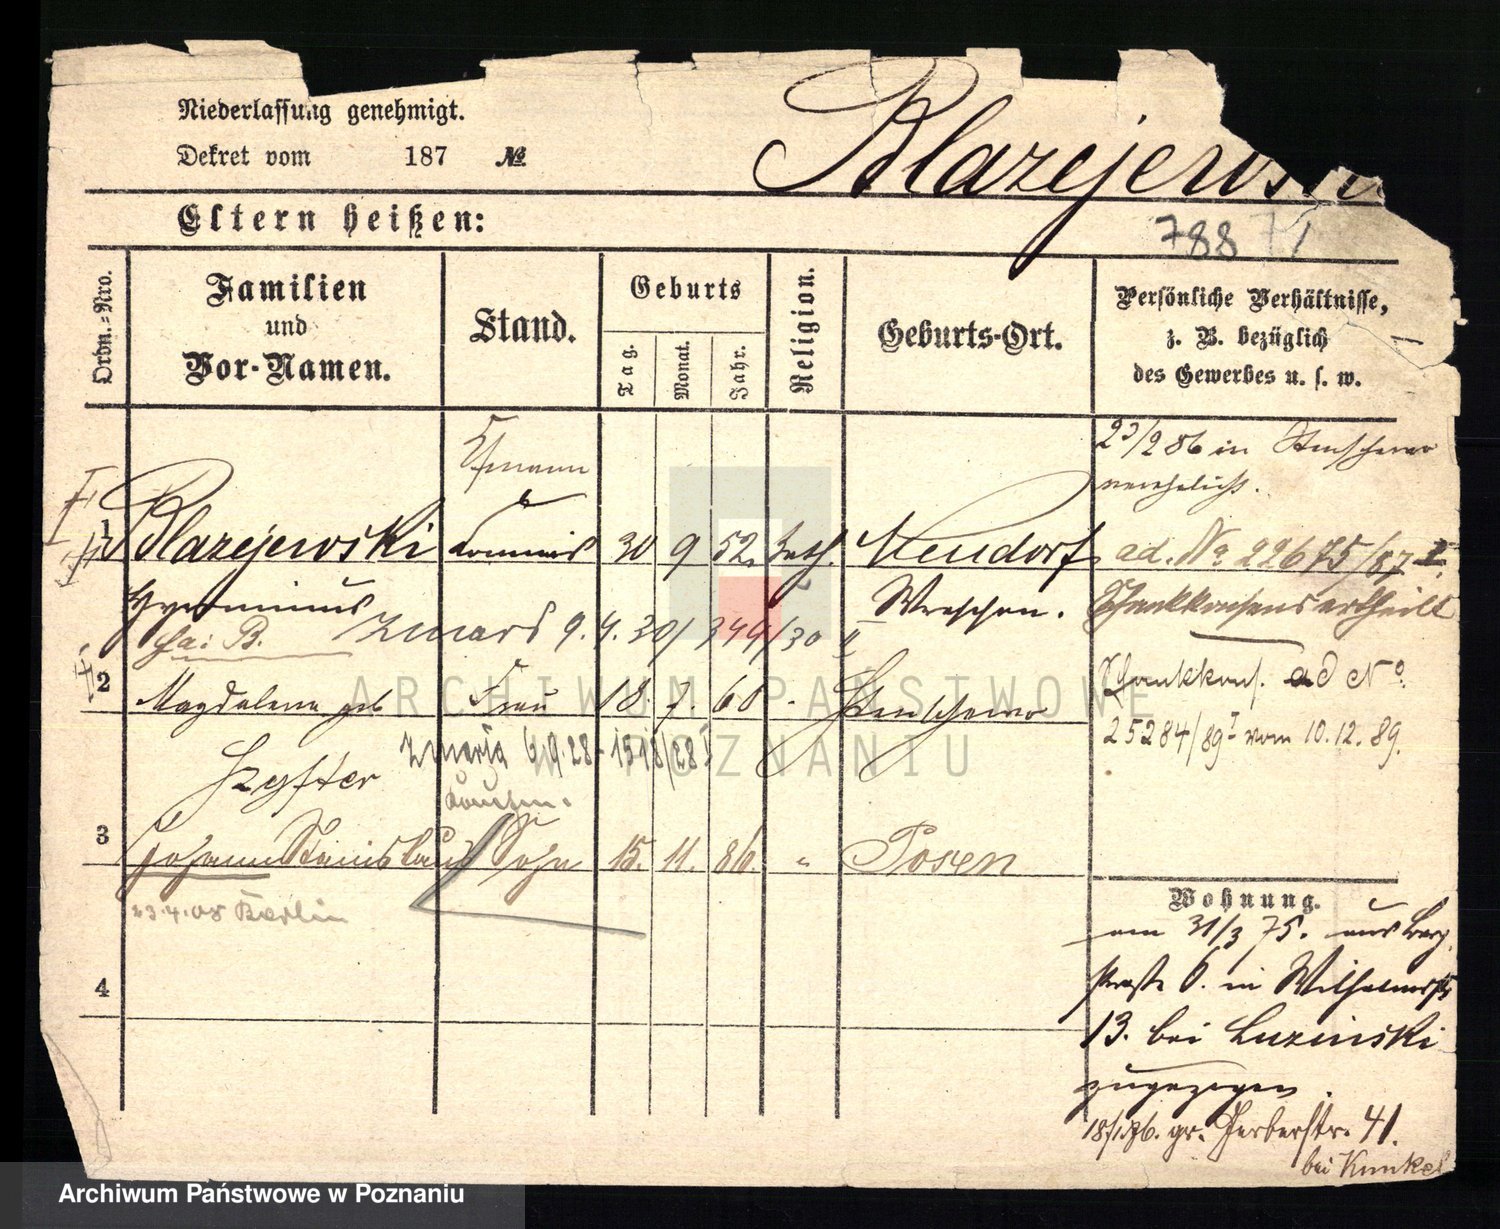 Niederlassung genehmigt.
Dekret vom 187 №
Blazejewski
Eltern heißen:
788 71
Ordn.-Nro.
Familien und Vor-Namen.
Stand.
Geburts
Tag. Monat. Jahr.
Religion.
Geburts-Ort.
Persönliche Verhältnisse,
z. B. bezüglich
des Gewerbes u. s. w.
Ehmann
23/2 86 in
verehelicht.
1 Blazejewski Commis 30 9 52. kath. Neudorf
Hyronimus Wreschen.
ad. No 22675/87 I.
Schankkonsens ertheilt
fai B. Zmarł 9.4.30/344/30 II
2 Magdalena geb Frau 18. 7. 60 "
Schankkons. ad No.
25284/89 I vom 10.12.89.
zmarła 6.9.28-1518/28 I
Szyfter
3 Johann Stanislaus Sohn 15. 11. 86. " Posen
23.4.08 Berlin
4
Wohnung.
am 31/3 75. aus Berg
straße 6. in Wilhelmspl
13. bei Luzinski
zugezogen.
18/1.76. gr. Gerberstr. 41.
bei Kunkel
ARCHIWUM PAŃSTWOWE
W POZNANIU
Archiwum Państwowe w Poznaniu